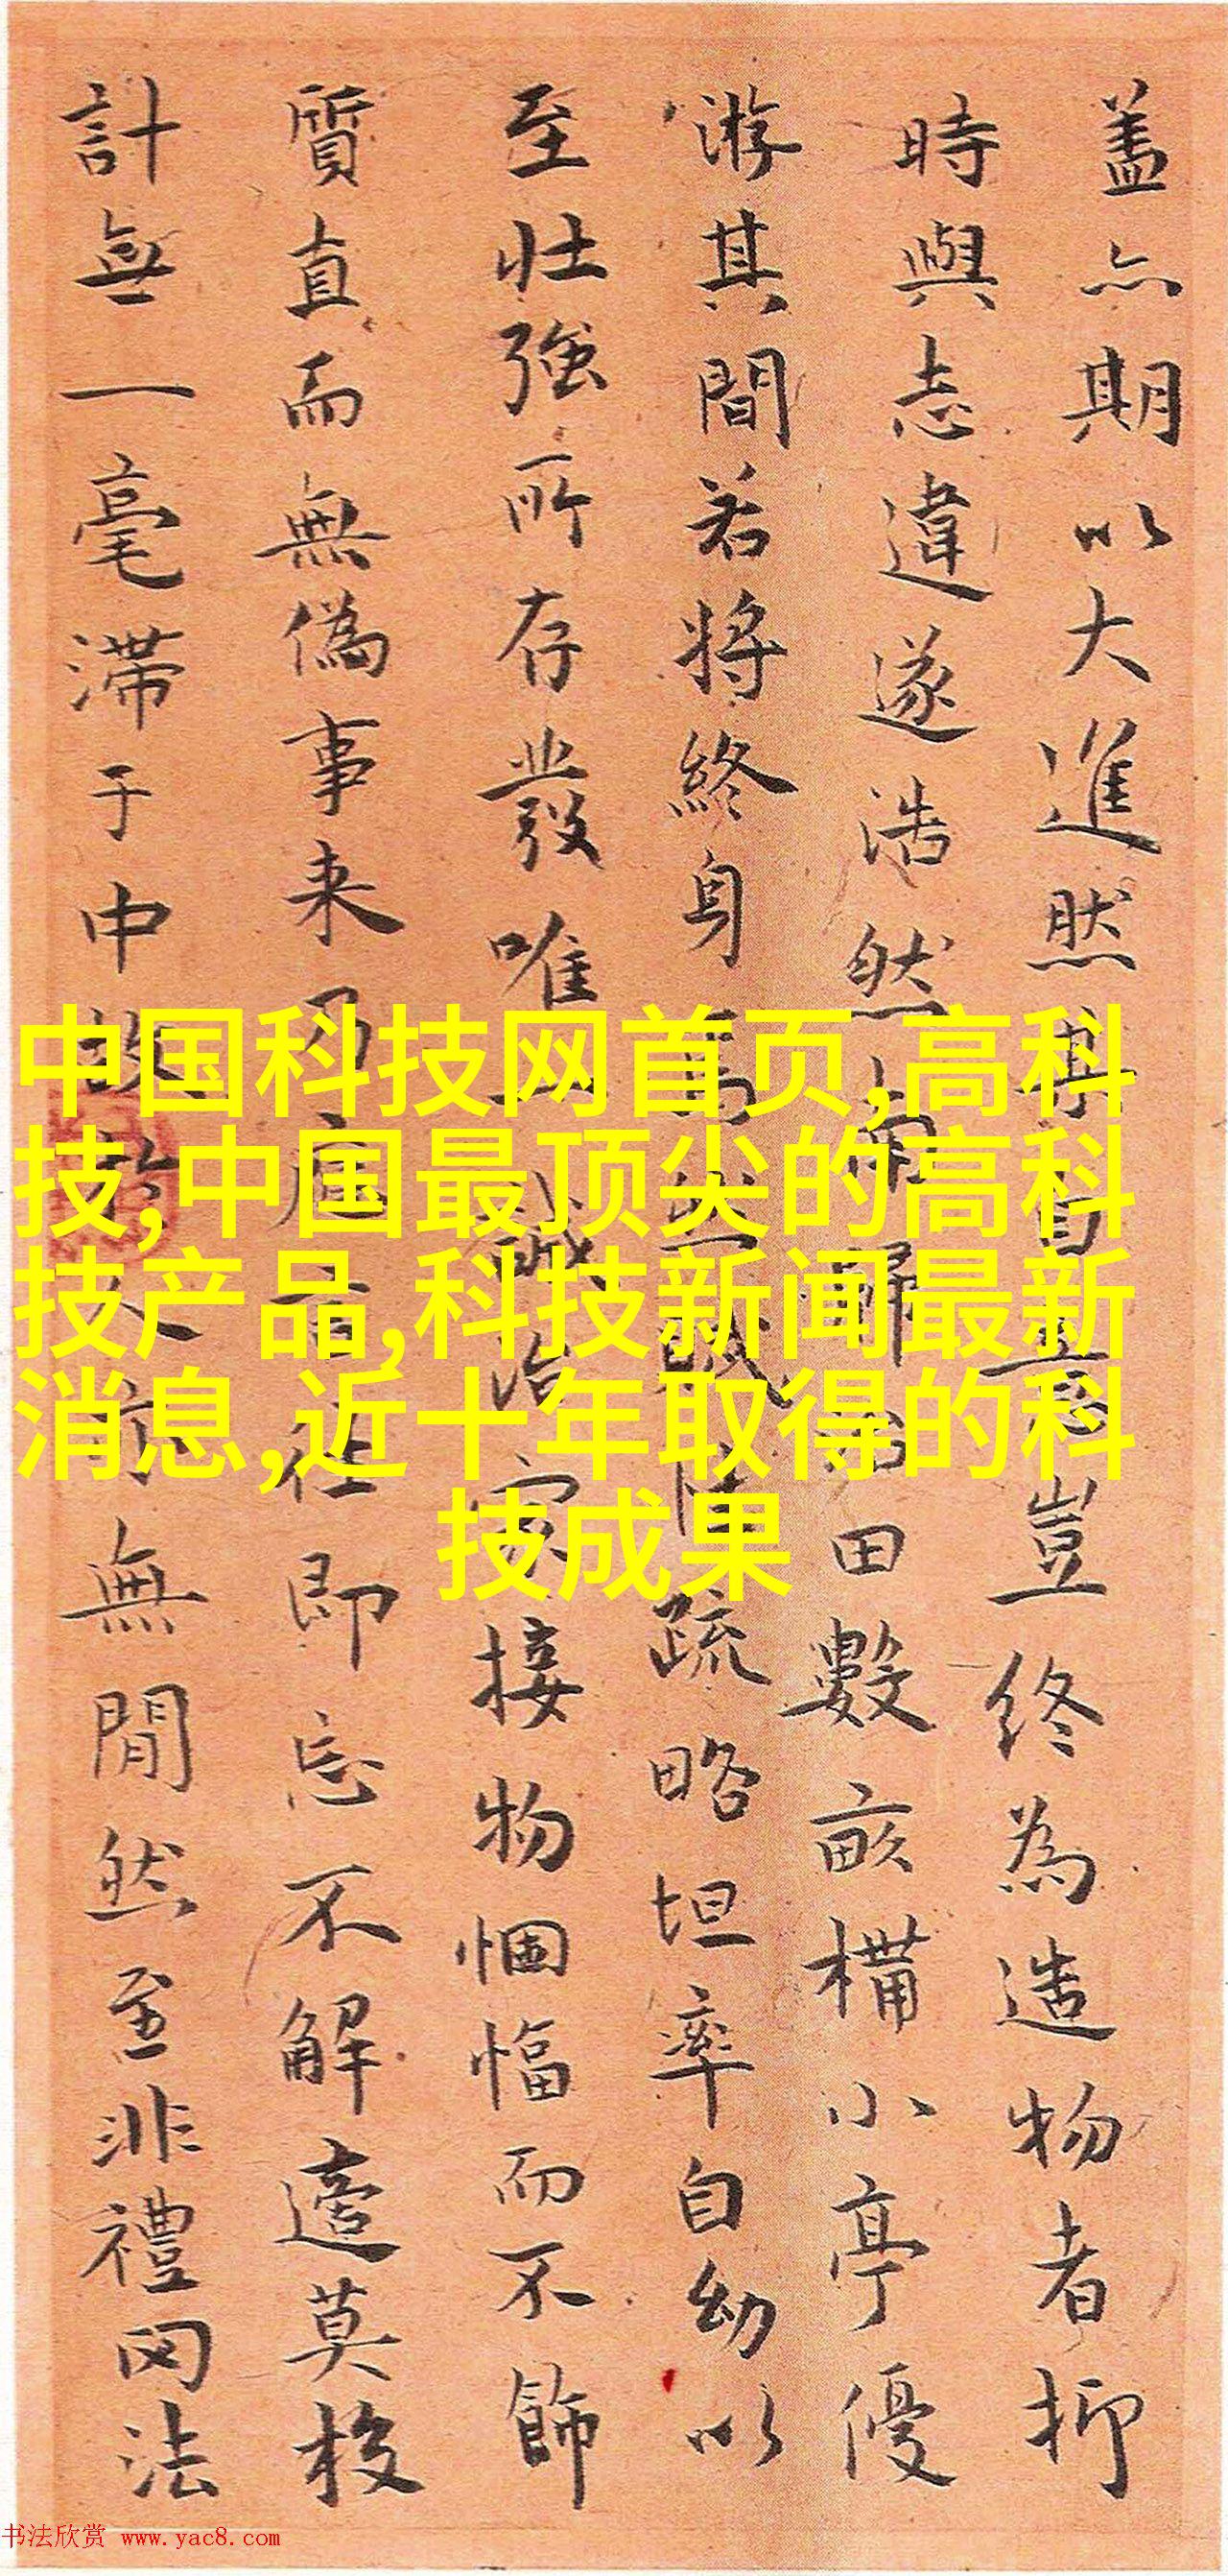 盖亦期以大進然其自豈終為造物者抑
時與志違遂浩然南歸治田數畝構小亭優
游其間若將終身焉然賦性疏略坦率自幼以
至壯強所存發唯一誠治家接物悃愊而不飾
質直而無偽事来乃應言往即忘不解莫校
計無一毫滯于中故於人亦無間然至非禮罔法
中国科技网首页,高科
技,中国最顶尖的高科
技产品,科技新闻最新
消息,近十年取得的科
技成果
书法欣赏 www.yac8.com